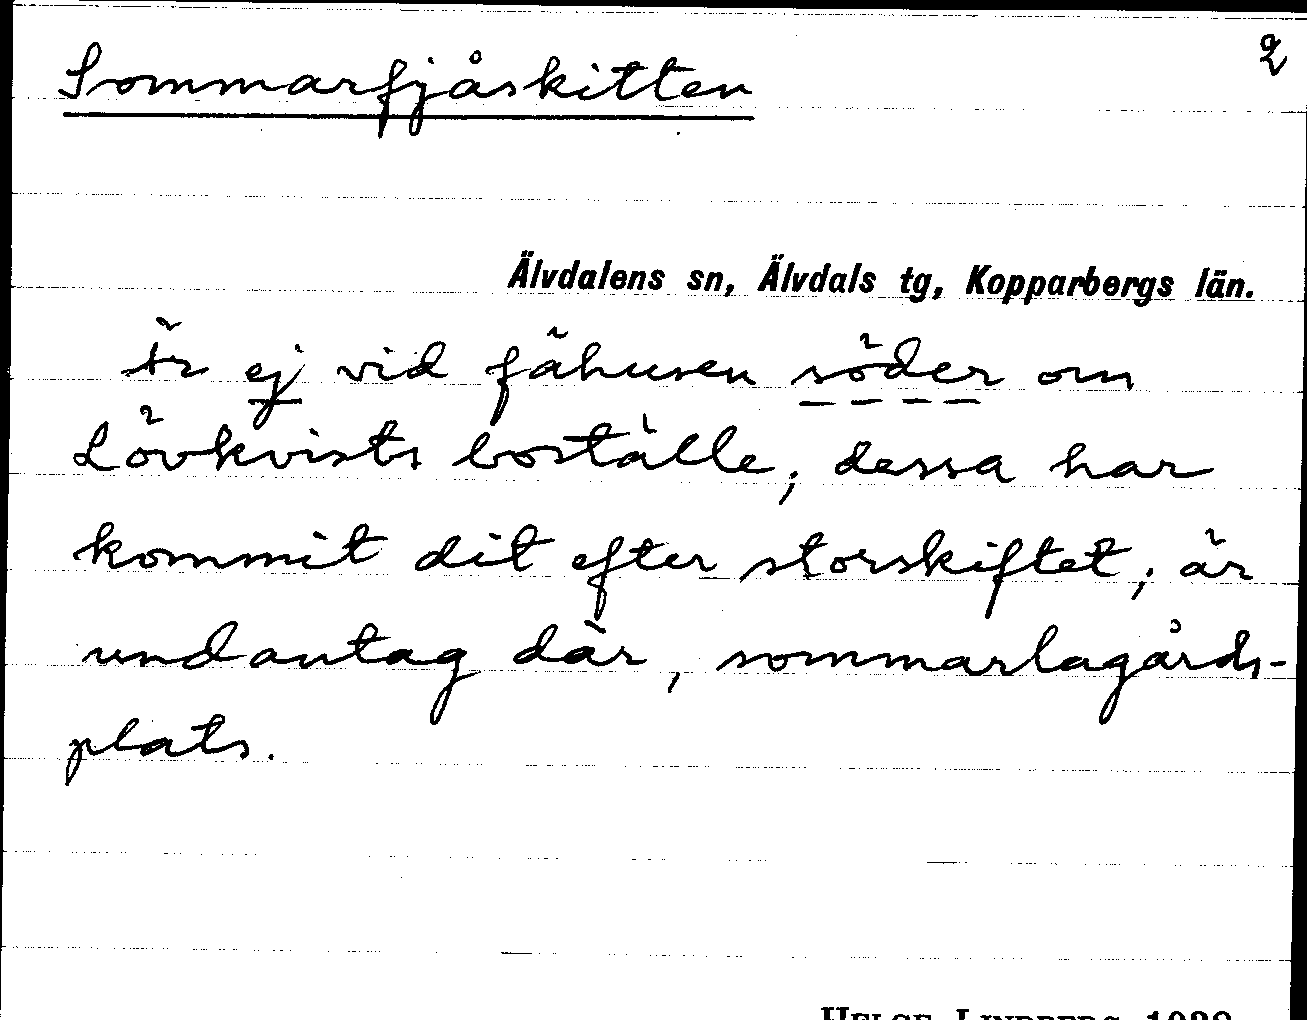 2
Sommarfjåskitten
Älvdalens sn, Älvdals tg, Kopparbergs län.
Är ej vid fähusen söder om
Lövkvists boställe; dessa har
kommit dit efter storskiftet; är
undantag där, sommarlagårds-
plats.